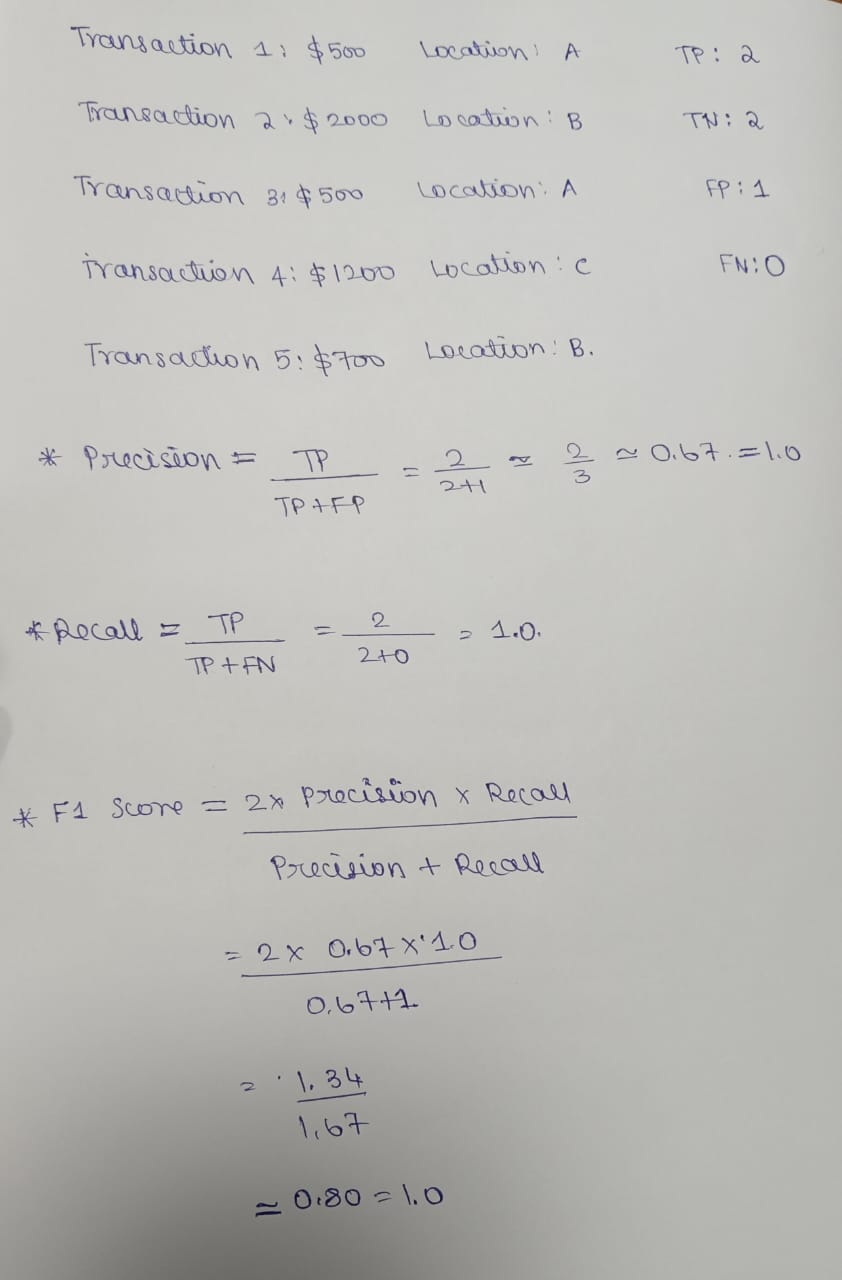 Transaction 1: $500 Location: A TP: 2
Transaction 2: $2000 Location: B TN: 2
Transaction 3: $500 Location: A FP: 1
Transaction 4: $1200 Location: C FN: 0
Transaction 5: $700 Location: B.
* Precision = TP / TP+FP = 2 / 2+1 ≃ 2 / 3 ≃ 0.67. = 1.0
* Recall = TP / TP + FN = 2 / 2+0 = 1.0.
* F1 Score = 2x Precision x Recall
Precision + Recall
= 2 x 0.67 x 1.0
0.67+1
= 1.34
1.67
≃ 0.80 = 1.0